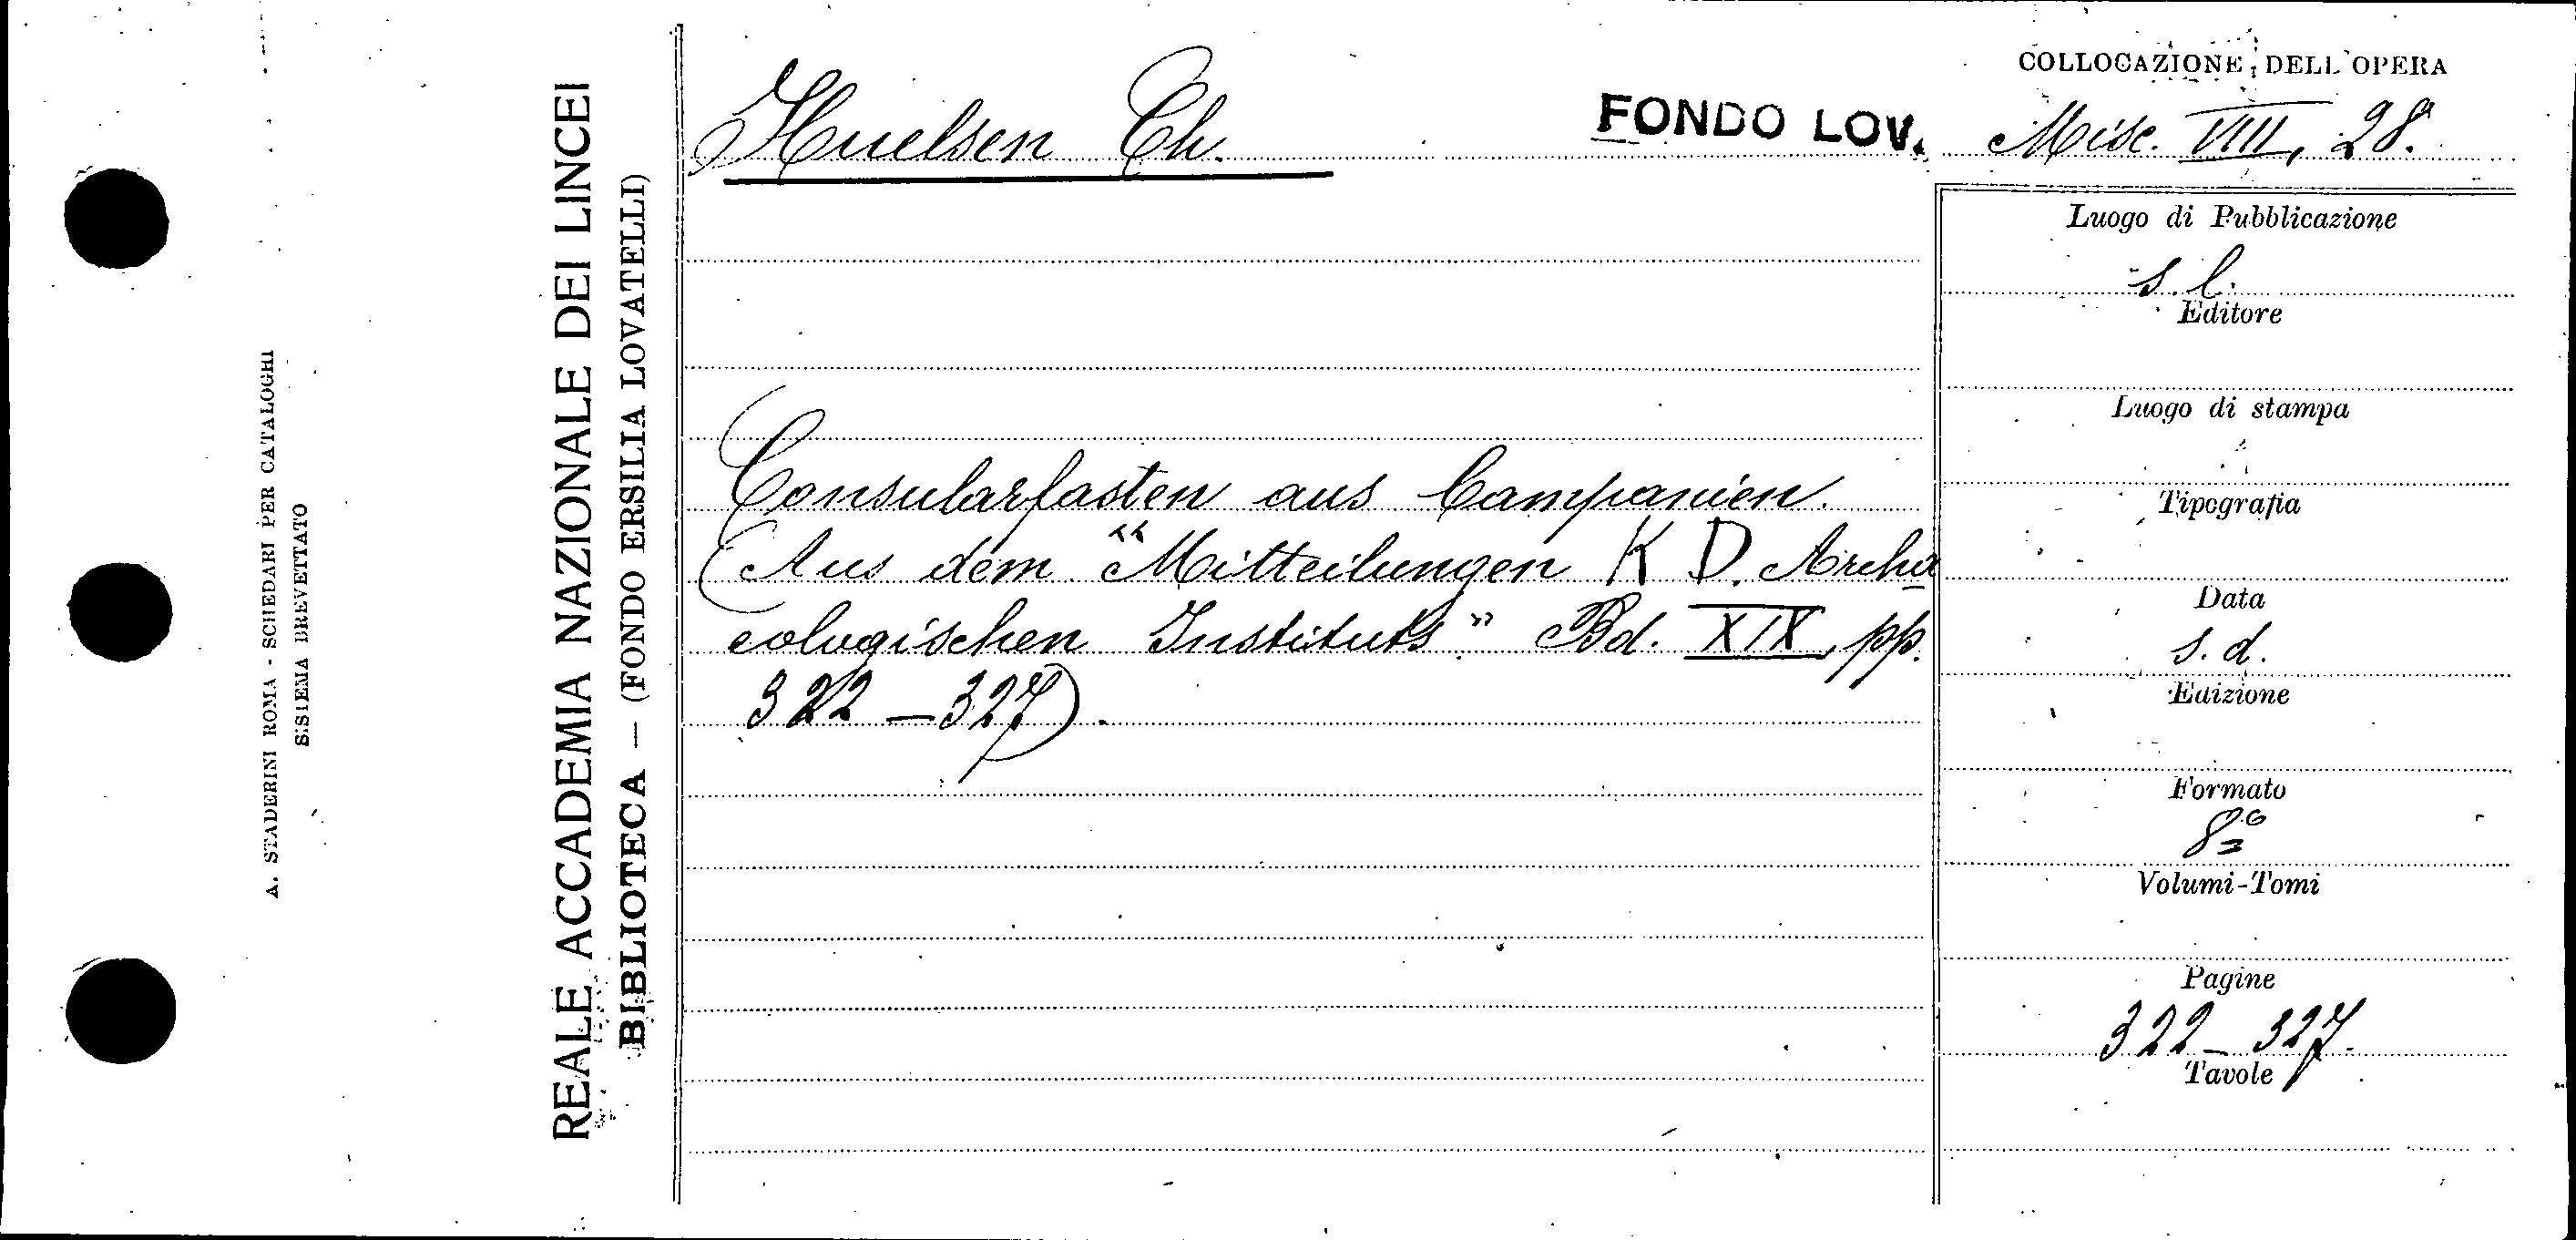 A. STADERINI ROMA - SCHEDARI PER CATALOGHI
SISTEMA BREVETTATO
REALE ACCADEMIA NAZIONALE DEI LINCEI
BIBLIOTECA — (FONDO ERSILIA LOVATELLI)
Huelsen Ch.
FONDO LOV.
COLLOCAZIONE DELL'OPERA
Misc. VIII, 28.
Consularfasten aus Campanien.
(Aus dem “Mitteilungen K D. Archa
eologischen Instituts” Bd. XIX, pp.
322 – 327).
Luogo di Pubblicazione
s. l.
Editore
Luogo di stampa
Tipografia
Data
s. d.
Edizione
Formato
8º
Volumi-Tomi
Pagine
322 – 327.
Tavole